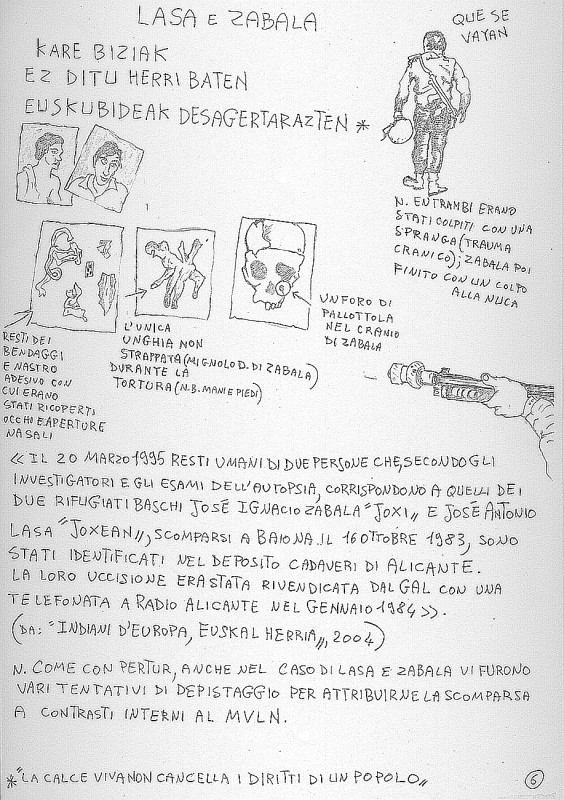 LASA E ZABALA
QUE SE
VAYAN
KARE BIZIAK
EZ DITU HERRI BATEN
EUSKUBIDEAK DESAGERTARAZTEN *
N. ENTRAMBI ERANO
STATI COLPITI CON UNA
SPRANGA (TRAUMA
CRANICO); ZABALA POI
FINITO CON UN COLPO
ALLA NUCA
UN FORO DI
PALLOTTOLA
NEL CRANIO
DI ZABALA
L'UNICA
UNGHIA NON
STRAPPATA (MIGNOLO D. DI ZABALA)
DURANTE LA
TORTURA (N.B. MANI E PIEDI)
RESTI DEI
BENDAGGI
E NASTRO
ADESIVO CON
CUI ERANO
STATI RICOPERTI
OCCHI E APERTURE
NASALI
« IL 20 MARZO 1995 RESTI UMANI DI DUE PERSONE CHE, SECONDO GLI
INVESTIGATORI E GLI ESAMI DELL'AUTOPSIA, CORRISPONDONO A QUELLI DEI
DUE RIFUGIATI BASCHI JOSÉ IGNACIO ZABALA "JOXI" E JOSÉ ANTONIO
LASA "JOXEAN", SCOMPARSI A BAIONA IL 16 OTTOBRE 1983, SONO
STATI IDENTIFICATI NEL DEPOSITO CADAVERI DI ALICANTE.
LA LORO UCCISIONE ERA STATA RIVENDICATA DAL GAL CON UNA
TELEFONATA A RADIO ALICANTE NEL GENNAIO 1984 ».
(DA: "INDIANI D'EUROPA, EUSKAL HERRIA", 2004)
N. COME CON PERTUR, ANCHE NEL CASO DI LASA E ZABALA VI FURONO
VARI TENTATIVI DI DEPISTAGGIO PER ATTRIBUIRNE LA SCOMPARSA
A CONTRASTI INTERNI AL MVLN.
* "LA CALCE VIVA NON CANCELLA I DIRITTI DI UN POPOLO"
6